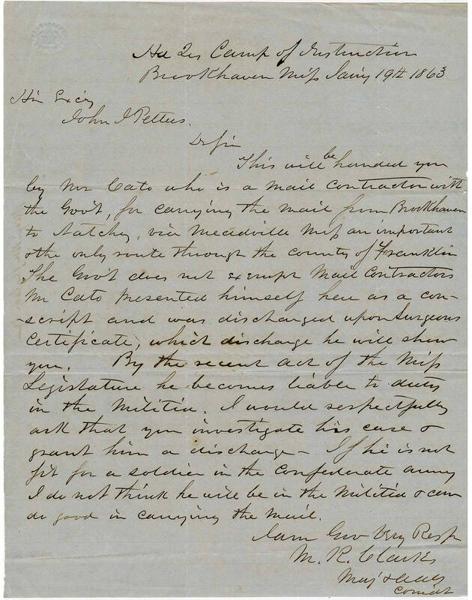 Hd Qrs Camp of Instruction
Brookhaven Miss Jany 19th 1863
His Excy
John J Pettus.
Dr Sir
This will be handed you
by Mr Cato who is a mail contractor with
the Gov't, for carrying the mail from Brookhaven
to Natchez, via Meadville Miss an important
& the only route through the county of Franklin
The Gov't does not exempt Mail Contractors
Mr Cato presented himself here as a con-
-script and was discharged upon Surgeons
Certificate, which discharge he will show
you. By the recent act of the Miss
Legislature he becomes liable to duty
in the Militia. I would respectfully
ask that you investigate his case &
grant him a discharge - If he is not
fit for a soldier in the Confederate army
I do not think he will be in the Militia & can
do good in carrying the mail.
I am Gov Very Resp
M. R. Clark
Maj &
Comdt